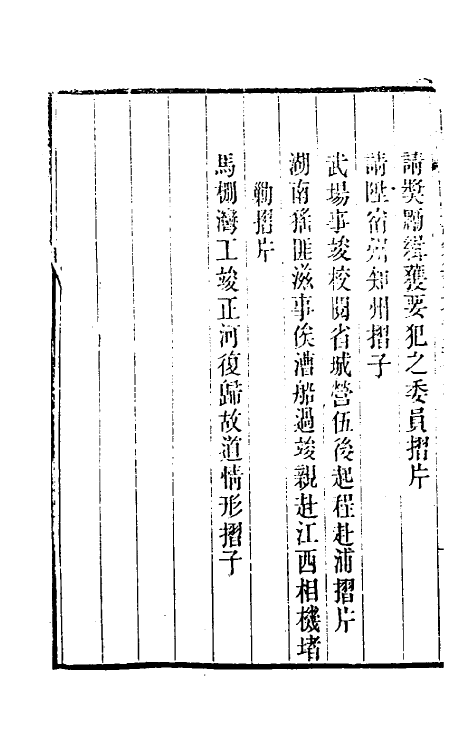 請奬勵緝獲要犯之委員摺片
請陞宿州知州摺子
武場事竣校閱省城營伍後起程赴浦摺片
湖南猺匪滋事俟漕船過竣親赴江西相機堵
勦摺片
馬棚灣工竣正河復歸故道情形摺子